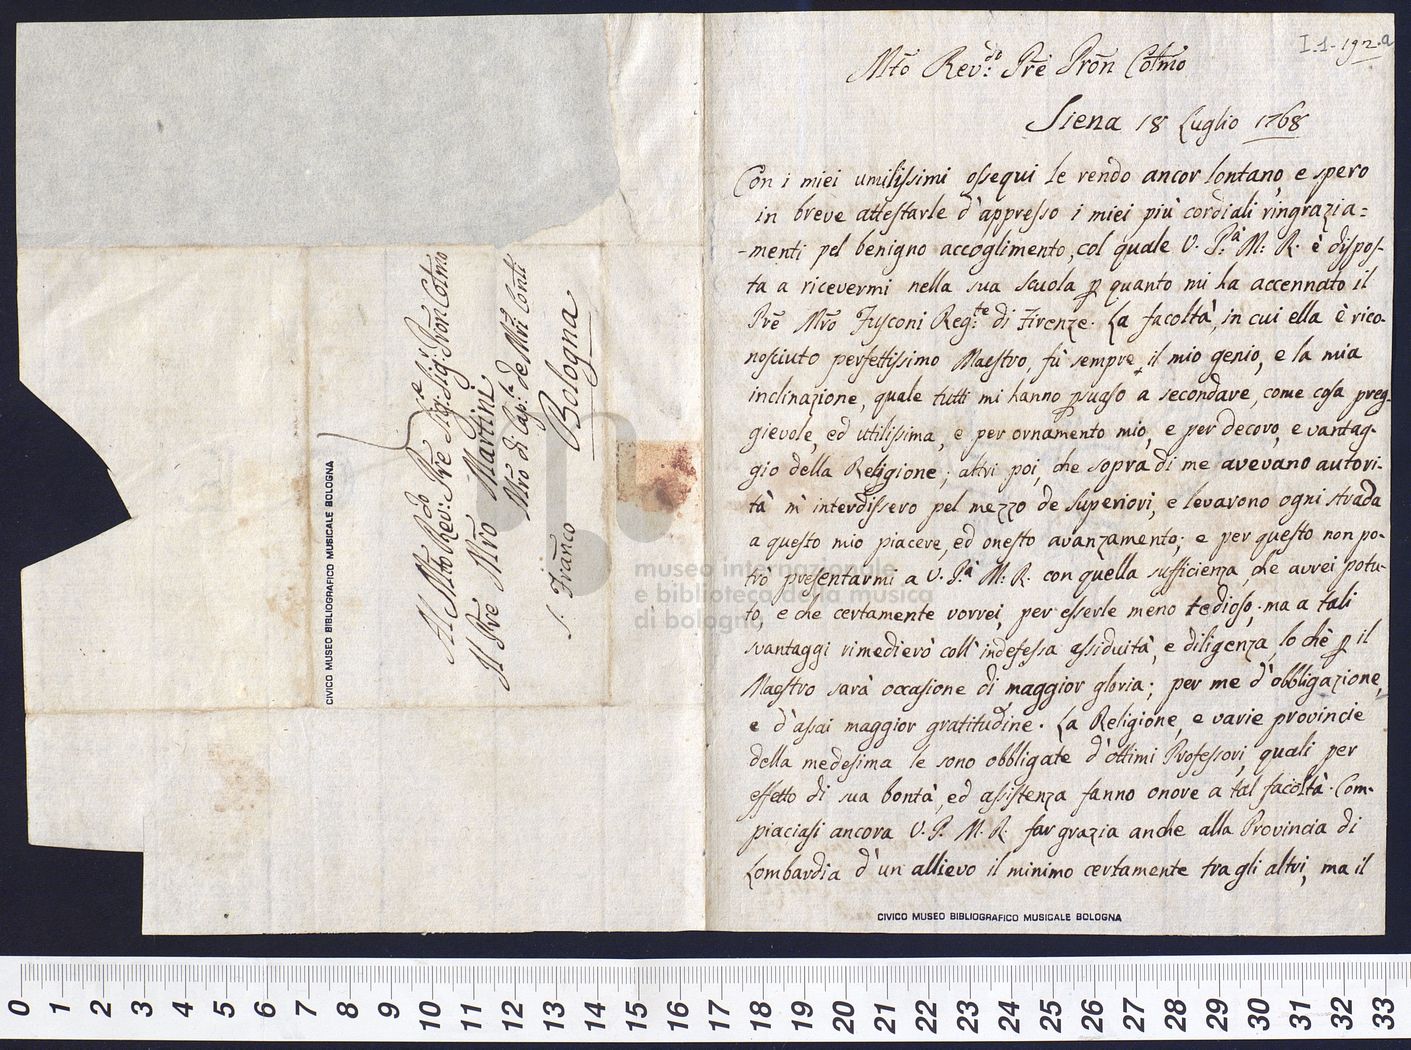 I.1-192.a
Mto Rev:do Pre Pron Colmo
Siena 18 Luglio 1768
Con i miei umilissimi ossequi le rendo ancor lontano, e spero
in breve attestarle d'appresso i miei più cordiali ringrazia=
-menti pel benigno accoglimento, col quale V. P.à M: R. è dispos-
ta a ricevermi nella sua scuola p quanto mi ha accennato il
Pre Mro Fusconi Reg:te di Firenze. La facoltà, in cui ella è rico-
nosciuto perfettissimo Maestro, fù sempre il mio genio, e la mia
inclinazione, quale tutti mi hanno psuaso a secondare, come cosa preg-
gievole, ed utilissima, e per ornamento mio, e per decoro, e vantag-
gio della Religione; altri poi, che sopra di me avevano autori-
tà m' interdissero pel mezzo de superiori, e levarono ogni strada
a questo mio piacere, ed onesto avanzamento; e per questo non po-
trò presentarmi a V. P.à M: R. con quella sufficienza, che avrei potu-
to, e che certamente vorrei, per esserle meno tedioso. ma a tali
svantaggi rimedierò coll' indefessa assiduità, e diligenza, lo chè p il
Maestro sarà occasione di maggior gloria; per me d'obbligazione,
e d'assai maggior gratitudine. La Religione, e varie provincie
della medesima le sono obbligate d'ottimi Professori, quali per
effetto di sua bontà, ed assistenza fanno onore a tal facoltà. Com-
piaciasi ancora V. P. M. R. far grazia anche alla Provincia di
Lombardia d'un allievo il minimo certamente tra gli altri, ma il
CIVICO MUSEO BIBLIOGRAFICO MUSICALE BOLOGNA
Al Mto Rev:do Pre Sig: Sig: Pron Colmo
Il Pre Mro Martini
Mro di Cap:la de Mri Conti
S. Franco Bologna
CIVICO MUSEO BIBLIOGRAFICO MUSICALE BOLOGNA
museo internazionale
e biblioteca della musica
di bologna
0 1 2 3 4 5 6 7 8 9 10 11 12 13 14 15 16 17 18 19 20 21 22 23 24 25 26 27 28 29 30 31 32 33